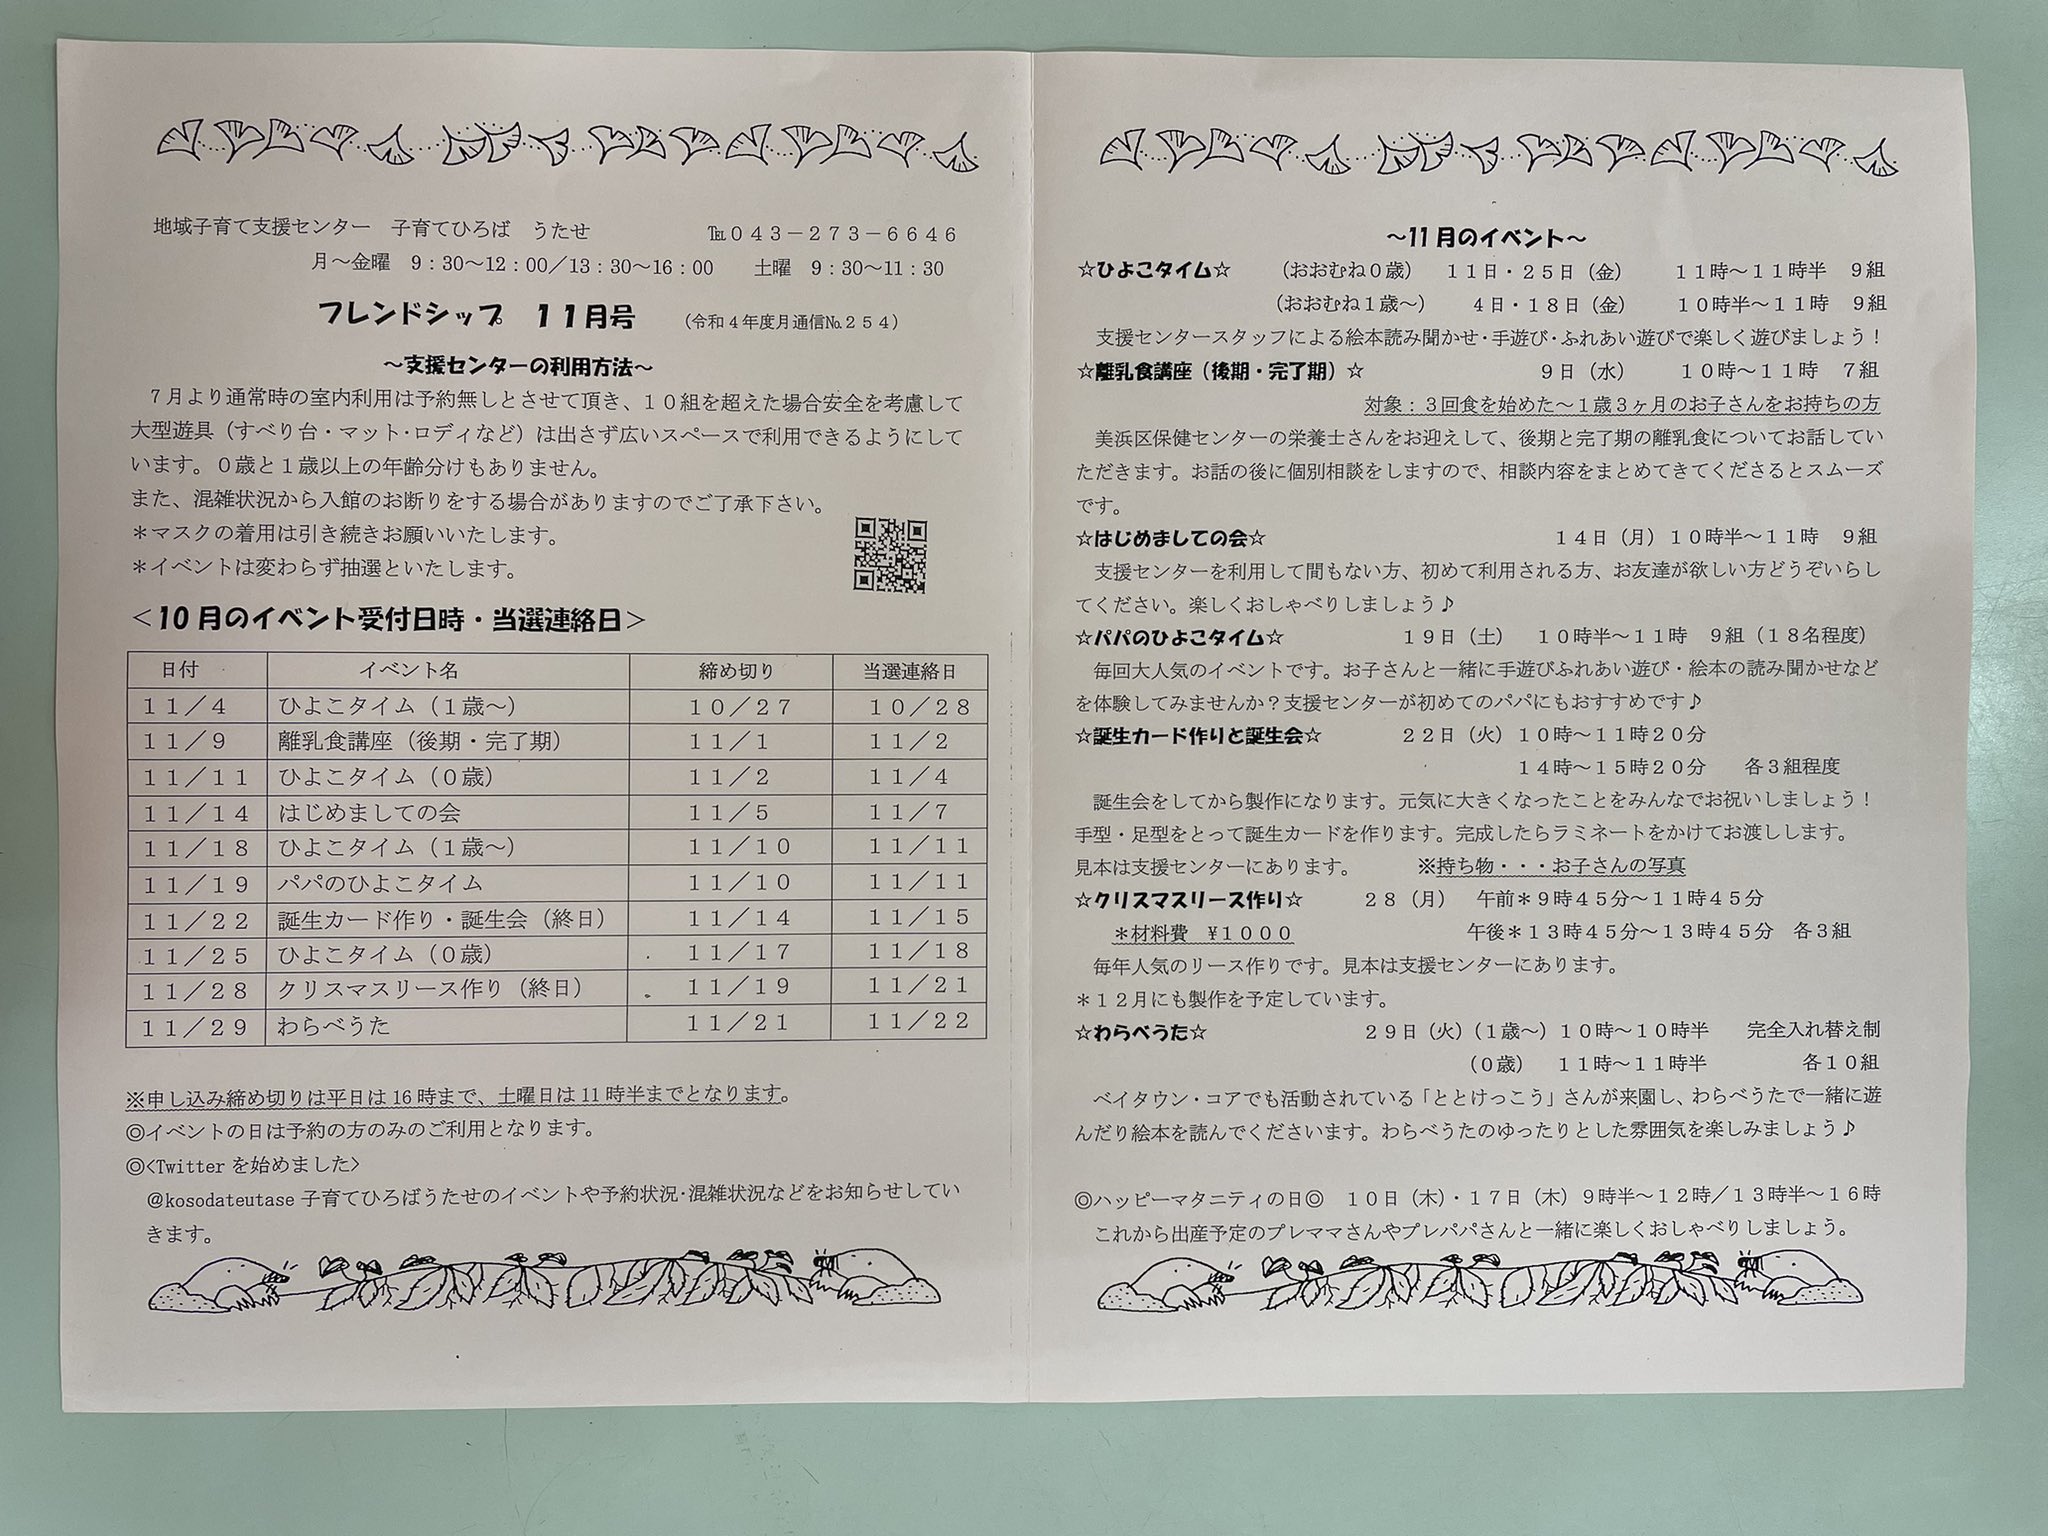 地域子育て支援センター　子育てひろば　うたせ　　　　　　℡０４３－２７３－６６４６
月～金曜　９：３０～１２：００／１３：３０～１６：００　　土曜　９：３０～１１：３０
フレンドシップ　１１月号　　（令和４年度月通信№２５４）
～支援センターの利用方法～
７月より通常時の室内利用は予約無しとさせて頂き、１０組を超えた場合安全を考慮して
大型遊具（すべり台・マット・ロディなど）は出さず広いスペースで利用できるようにして
います。０歳と１歳以上の年齢分けもありません。
また、混雑状況から入館のお断りをする場合がありますのでご了承下さい。
＊マスクの着用は引き続きお願いいたします。
＊イベントは変わらず抽選といたします。
＜10月のイベント受付日時・当選連絡日＞
日付　イベント名　締め切り　当選連絡日
１１／４　ひよこタイム（１歳～）　１０／２７　１０／２８
１１／９　離乳食講座（後期・完了期）　１１／１　１１／２
１１／１１　ひよこタイム（０歳）　１１／２　１１／４
１１／１４　はじめましての会　１１／５　１１／７
１１／１８　ひよこタイム（１歳～）　１１／１０　１１／１１
１１／１９　パパのひよこタイム　１１／１０　１１／１１
１１／２２　誕生カード作り・誕生会（終日）　１１／１４　１１／１５
１１／２５　ひよこタイム（０歳）　１１／１７　１１／１８
１１／２８　クリスマスリース作り（終日）　１１／１９　１１／２１
１１／２９　わらべうた　１１／２１　１１／２２
※申し込み締め切りは平日は16時まで、土曜日は11時半までとなります。
◎イベントの日は予約の方のみのご利用となります。
◎<Twitterを始めました>
＠kosodateutase 子育てひろばうたせのイベントや予約状況・混雑状況などをお知らせしてい
きます。
～11月のイベント～
☆ひよこタイム☆　　（おおむね０歳）　１１日・２５日（金）　　１１時～１１時半　９組
（おおむね１歳～）　　４日・１８日（金）　　１０時半～１１時　９組
支援センタースタッフによる絵本読み聞かせ・手遊び・ふれあい遊びで楽しく遊びましょう！
☆離乳食講座（後期・完了期）☆　　９日（水）　　１０時～１１時　７組
対象：３回食を始めた～１歳３ヶ月のお子さんをお持ちの方
美浜区保健センターの栄養士さんをお迎えして、後期と完了期の離乳食についてお話してい
ただきます。お話の後に個別相談をしますので、相談内容をまとめてきてくださるとスムーズ
です。
☆はじめましての会☆　　１４日（月）１０時半～１１時　９組
支援センターを利用して間もない方、初めて利用される方、お友達が欲しい方どうぞいらし
てください。楽しくおしゃべりしましょう♪
☆パパのひよこタイム☆　　１９日（土）　１０時半～１１時　９組（１８名程度）
毎回大人気のイベントです。お子さんと一緒に手遊びふれあい遊び・絵本の読み聞かせなど
を体験してみませんか？支援センターが初めてのパパにもおすすめです♪
☆誕生カード作りと誕生会☆　　２２日（火）１０時～１１時２０分
１４時～１５時２０分　　各３組程度
誕生会をしてから製作になります。元気に大きくなったことをみんなでお祝いしましょう！
手型・足型をとって誕生カードを作ります。完成したらラミネートをかけてお渡しします。
見本は支援センターにあります。　　※持ち物・・・お子さんの写真
☆クリスマスリース作り☆　　２８（月）　午前＊９時４５分～１１時４５分
＊材料費　¥１０００　　午後＊１３時４５分～１３時４５分　各３組
毎年人気のリース作りです。見本は支援センターにあります。
＊１２月にも製作を予定しています。
☆わらべうた☆　　２９日（火）（１歳～）１０時～１０時半　　完全入れ替え制
（０歳）　１１時～１１時半　　各１０組
ベイタウン・コアでも活動されている「ととけっこう」さんが来園し、わらべうたで一緒に遊
んだり絵本を読んでくださいます。わらべうたのゆったりとした雰囲気を楽しみましょう♪
◎ハッピーマタニティの日◎　１０日（木）・１７日（木）９時半～１２時／１３時半～１６時
これから出産予定のプレママさんやプレパパさんと一緒に楽しくおしゃべりしましょう。